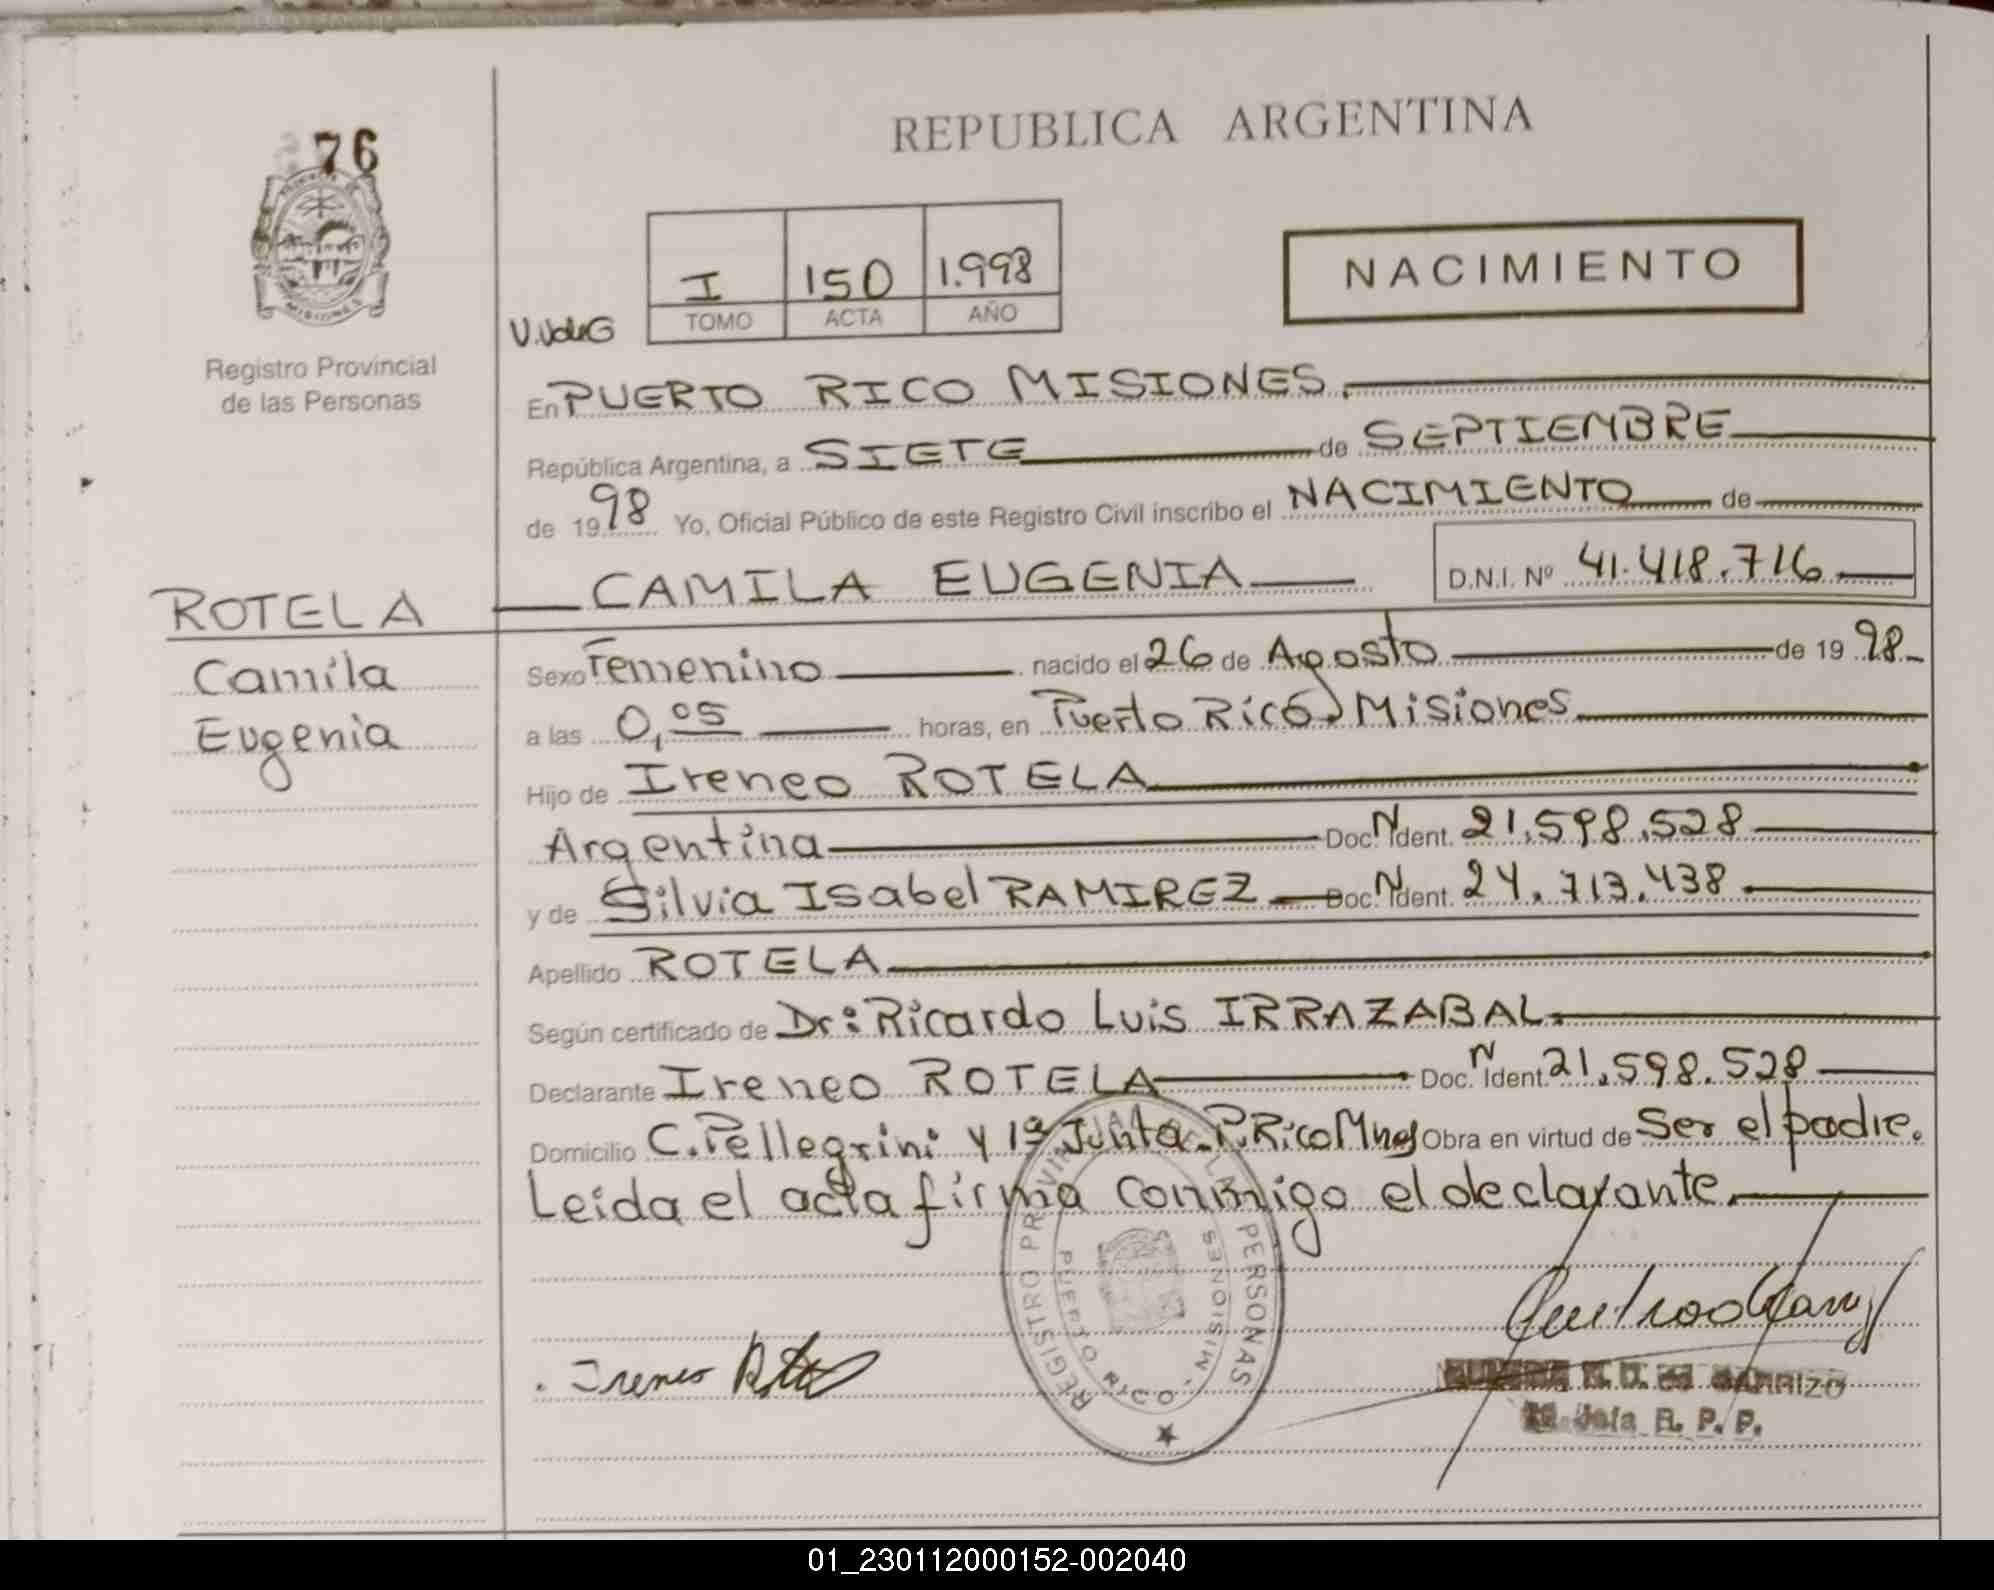 76
REPUBLICA ARGENTINA
I 150 1.998
TOMO ACTA AÑO
NACIMIENTO
MISIONES
Registro Provincial
de las Personas
En PUERTO RICO MISIONES.
República Argentina, a SIETE de SEPTIEMBRE
de 1998 Yo, Oficial Público de este Registro Civil inscribo el NACIMIENTO de
CAMILA EUGENIA D.N.I. Nº 41.418.716
ROTELA
Camila
Eugenia
Sexo Femenino nacido el 26 de Agosto de 19 98
a las 0,05 horas, en Puerto Rico, Misiones
Hijo de Ireneo ROTELA
Argentina Doc. N Ident. 21.598.528
y de Silvia Isabel RAMIREZ Doc. N Ident. 24.713.438
Apellido ROTELA
Según certificado de Dr: Ricardo Luis IRRAZABAL
Declarante Ireneo ROTELA Doc. N Ident. 21.598.528
Domicilio C. Pellegrini y 1ª Junta - P. Rico Mnes Obra en virtud de Ser el padre.
Leida el acta firma conmigo el declarante.
REGISTRO PROVINCIAL DE LAS PERSONAS
PUERTO RICO - MISIONES
Ireneo
CARRIZO
Jefa R. P. P.
01_230112000152-002040